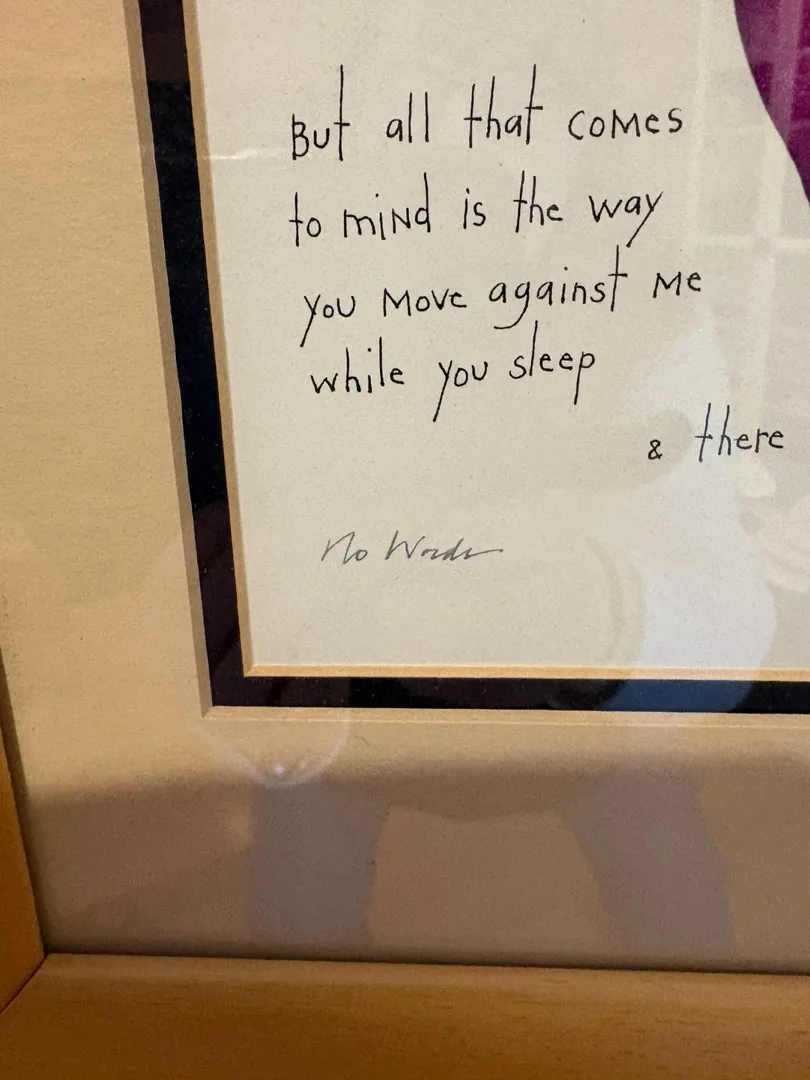 But all that comes
to mind is the way
you move against me
while you sleep
& there
No Words